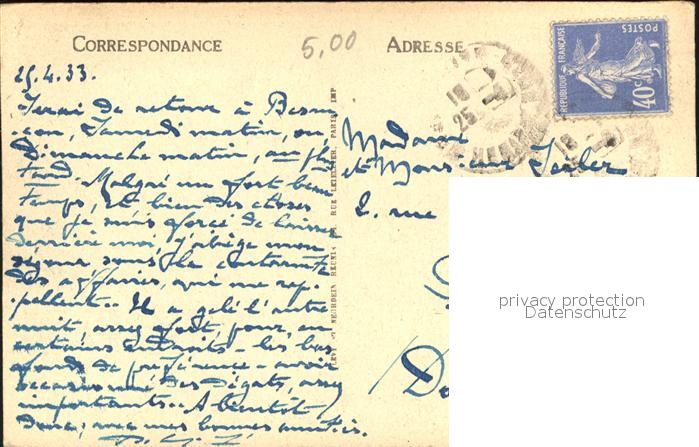 CORRESPONDANCE
5,00
ADRESSE
25.4.33.
RÉPUBLIQUE FRANÇAISE
POSTES
40c
Serai de retour à Besan
çon, Samedi matin, ou
Dimanche matin, au plus
tard. Malgré un fort beau
temps, et bien des choses
que je suis forcé de laisser
derrière moi, j'abrège mon
séjour sous la contrainte
des affaires, qui me rap-
pellent.. Il a gelé l'autre
nuit, assez fort, pour, en
certains endroits - les bas
fonds de préférence - avoir
occasionné des dégâts, assez
importants.. A bientôt
donc, avec mes bonnes amitiés.
Madame
et Monsieur
2. rue
LEVY & NEURDEIN RÉUNIS RUE LETELLIER, PARIS IMP
privacy protection
Datenschutz